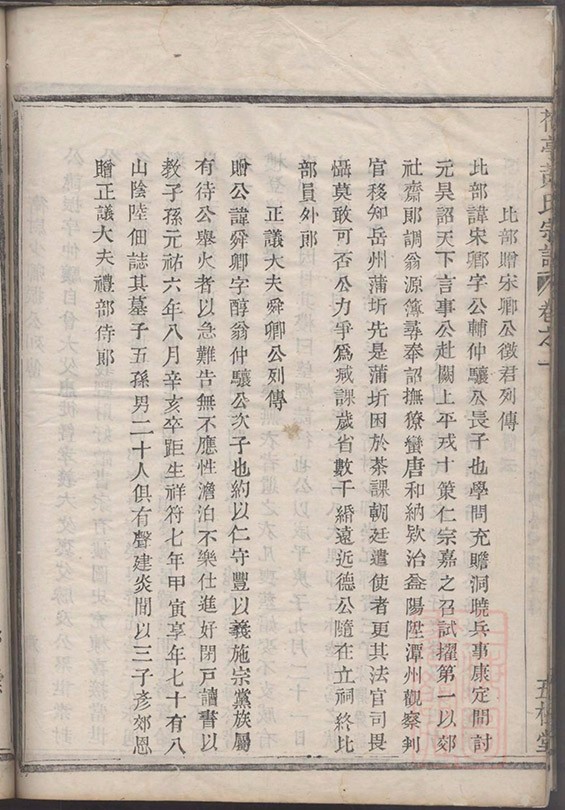 比部贈宋卿公徵君列傳
比部諱宋卿字公輔仲驤公長子也學問充贍洞曉兵事康定間討
元昊詔天下言事公赴闕上平戎十策仁宗嘉之召試擢第一以郊
社齋郎調翁源簿尋奉詔撫獠蠻唐和納欵治益陽陞潭州觀察判
官移知岳州蒲圻先是蒲圻困於茶課朝廷遣使者更其法官司畏
懾莫敢可否公力爭爲减課歲省數千緡遠近德公隨在立祠終比
部員外郎
正議大夫舜卿公列傳
贈公諱舜卿字醇翁仲驤公次子也約以仁守豐以義施宗黨族屬
有待公舉火者以急難告無不應性澹泊不樂仕進好閉戸讀書以
教子孫元祐六年八月辛亥卒距生祥符七年甲寅享年七十有八
山陰陸佃誌其墓子五孫男二十人俱有聲建炎間以三子彥郊恩
贈正議大夫禮部侍郎
氏宗譜 卷之一
五桂堂